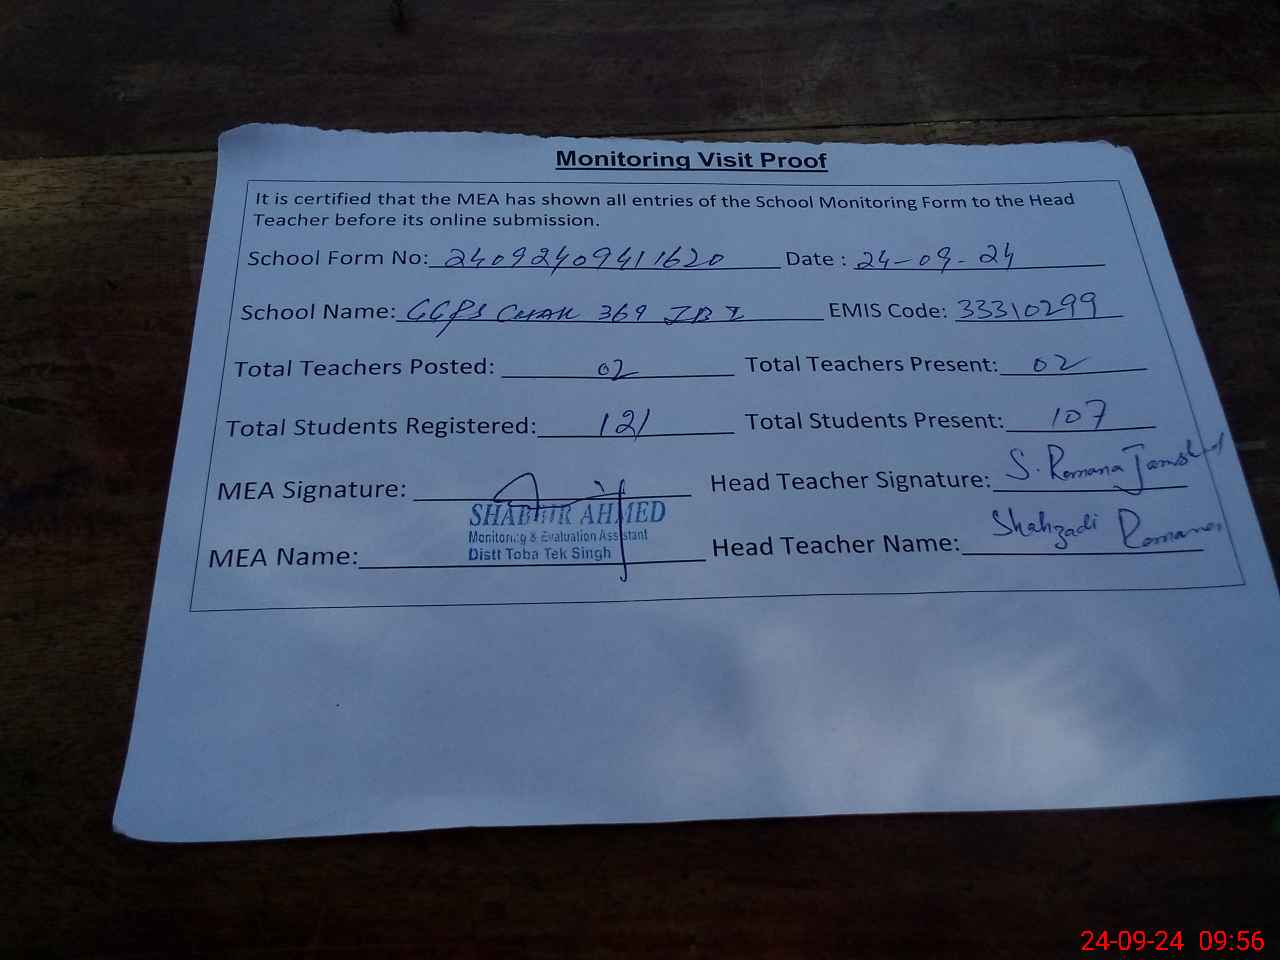 Monitoring Visit Proof
It is certified that the MEA has shown all entries of the School Monitoring Form to the Head
Teacher before its online submission.
School Form No: 24092409411620 Date : 24-09-24
School Name: GGPS CHAK 369 JB I EMIS Code: 33310299
Total Teachers Posted: 02 Total Teachers Present: 02
Total Students Registered: 121 Total Students Present: 107
MEA Signature: Head Teacher Signature: S. Romana Jamshed
SHABBIR AHMED
Monitoring & Evaluation Assistant
Distt Toba Tek Singh
MEA Name: Head Teacher Name: Shahzadi Romana
24-09-24 09:56